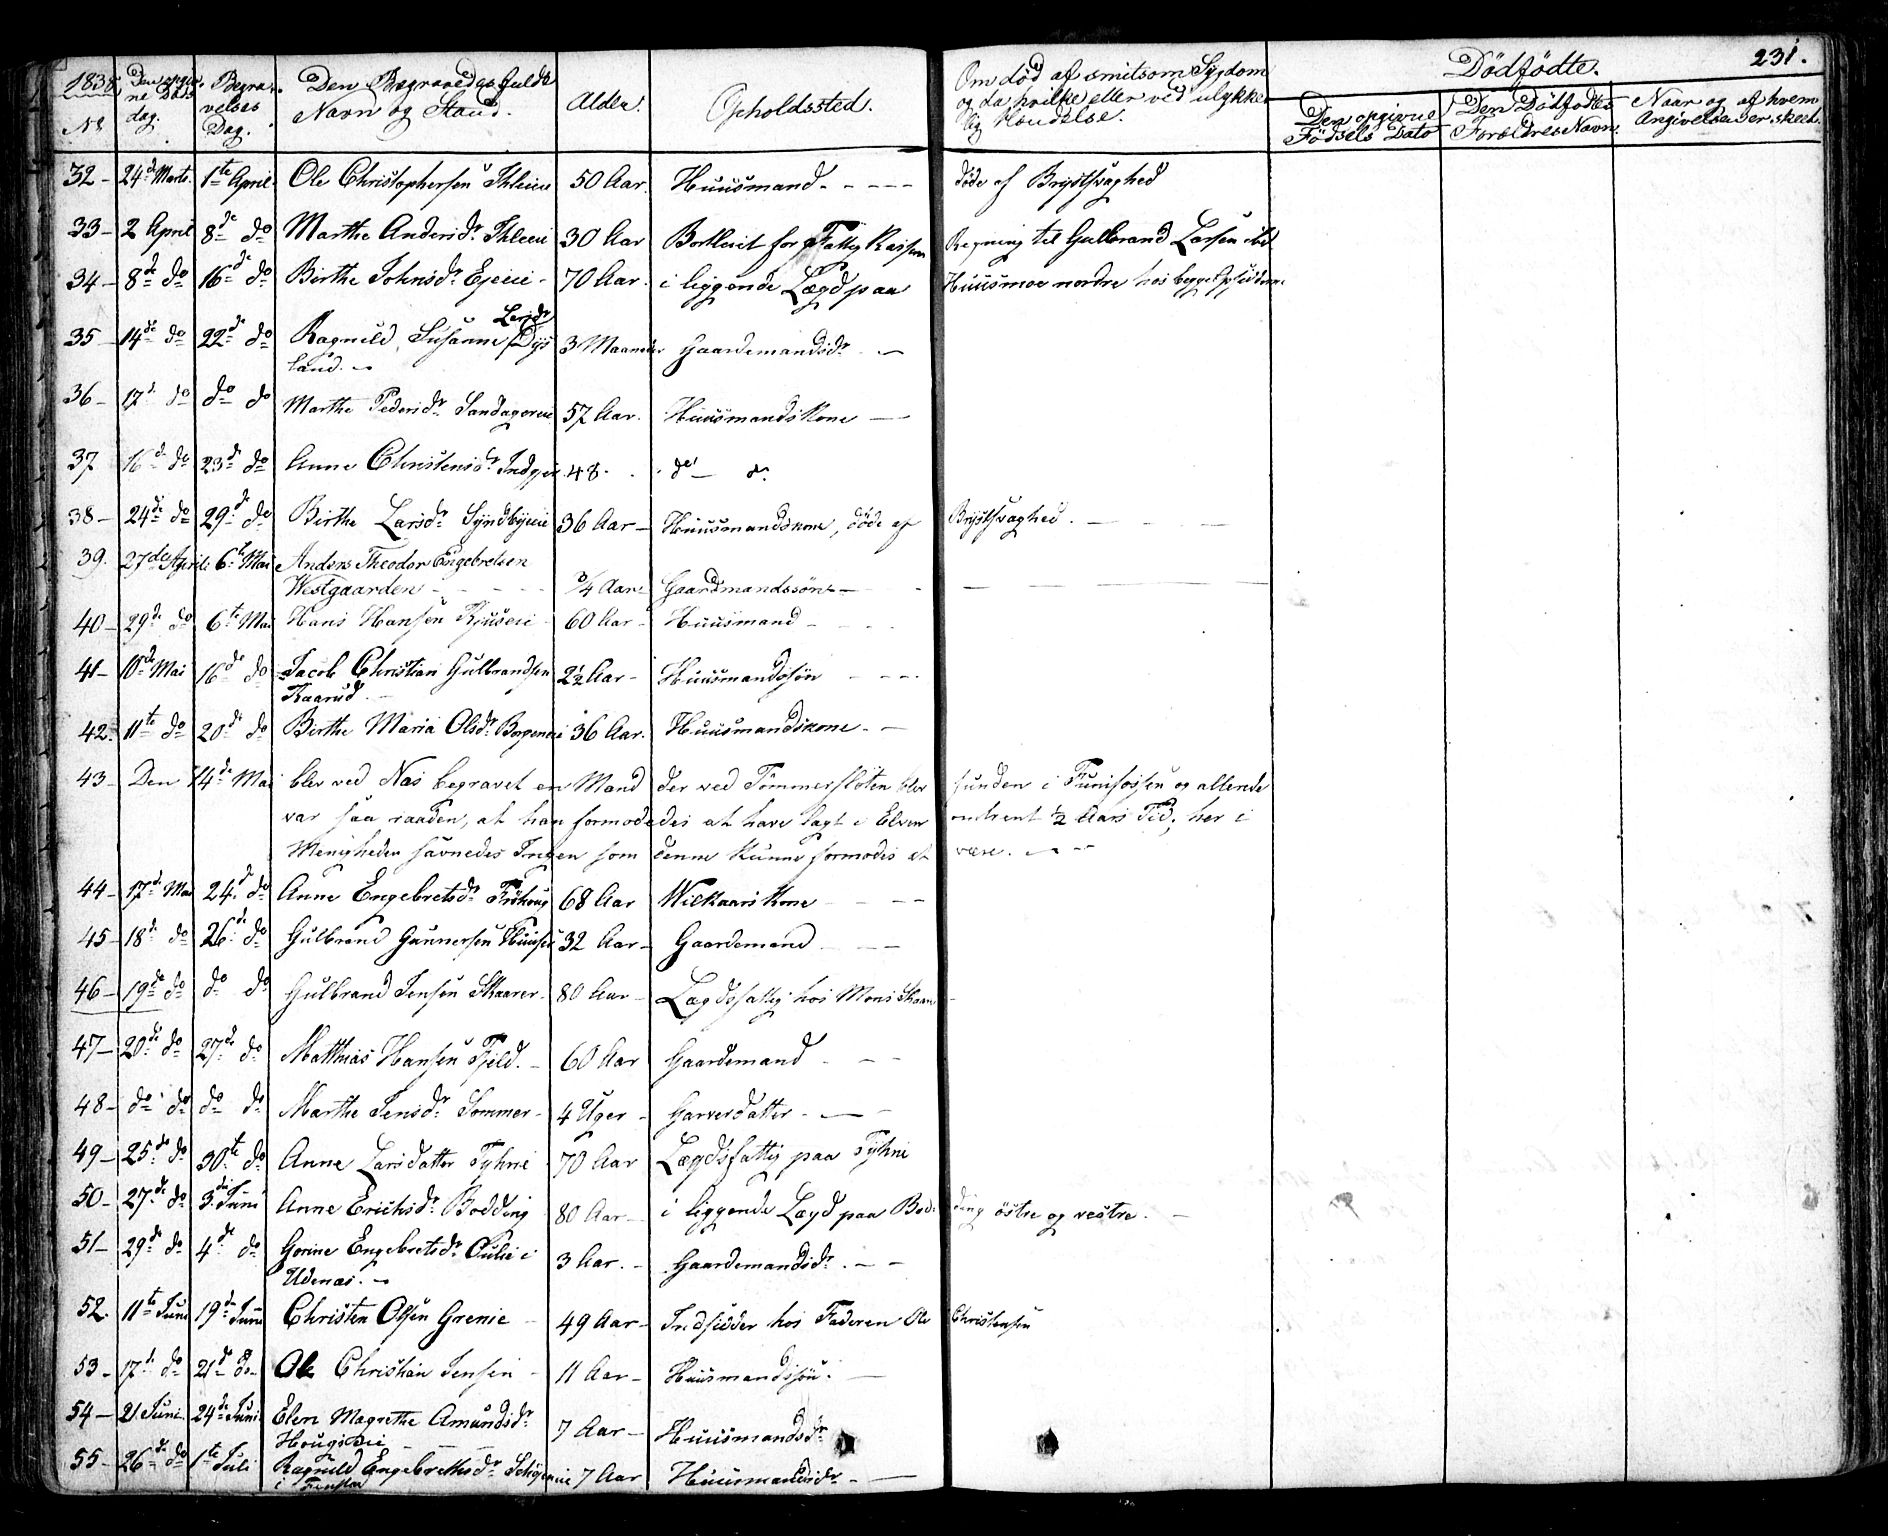 1838. Den opgivne Døds dag. Begravelses Dag. Den Begravedes fulde Navn og Stand. Alder. Opholdssted. Om død af smitsom Sygdom og da hvilke eller ved ulykkelig Hændelse. Dødfødte. 231.
No Den opgivne Fødsels Dato Den Dødfødtes Forældres Navn. Naar og af hvem Angivelsen er skeet.
32 - 24de Marts. 1te April Ole Christophersen Ihleeie 50 Aar. Huusmand - - - - døde af Brystsvaghed
33 - 2 April 8de do Marthe Andersdr. Ihleeie 30 Aar Bortleiet for Fattig Kassens Regning til Gulbrand Larsen
34 - 8de do 16de do Birthe Johnsdr Ejeeie - 70 Aar. i liggende Lægd paa Huusmoe nordre hos begge Opsiddere
35 - 14de do 22de do Ragnild Susanne Larsdr Dys 3 Maaneder Gaardemandsdr. -
land. -
36 - 17de do do do Marthe Pedersdr Sandagereie 57 Aar. Huusmandskone -
37 16de do 23de do Anne Christensdr 48. do - do
38 - 24de do 29de do Birthe Larsdr Syndbyeeie 36 Aar - Huusmandskone, døde af Brystsvaghed. - - -
39. 27de April 6te Mai Anders Theodor Engebretsen
Westgaarden - - - - 3/4 Aar. Gaardmandssøn. - -
40 - 29de do 6te Mai Hans Hansen 60 Aar - Huusmand - - -
41 - 10de Mai 16de do Jacob Christian Gulbrandsen 2 1/2 Aar - Huusmandssøn - - -
Kaarud. -
42. 11te do 20de do Birthe Maria Olsdr. Borgeneie 36 Aar. Huusmandskone. -
43 - Den 14de Mai blev ved Næs begravet en Mand der ved Tømmerfløten blev funden i Funisfossen og allerede
var saa raaden, at han formodedes at have lagt i Elven omtrent 1/2 Aars Tid; her i
Menigheden savnedes Ingen som denne kunne formodes at være. - -
44 - 17de Mai 24. de do Anne Engebretsdr Frøhoug 68 Aar Wilkaarskone - - -
45 - 18de do 26de do Gulbrand Gunnersen 32 Aar - Gaardemand - - -
46 - 19de do do do Gulbrand Jensen Skaarer - 80 Aar - Lægdsfattig hos Mons Skaarer -
47 - 20de do 27de do Matthias Hansen Fjeld. - 60 Aar Gaardemand - - -
48 - do do do do Marthe Jensdr. Sommer - 4 Uger - Garverdatter - - -
49 - 25de do 30te do Anne Larsdatter Tyhne 70 Aar Lægdsfattig paa Tyhne
50 - 27de do 3die Juni Anne Erichsdr. Bodding 80 Aar - i liggende Lægd paa Bodding østre og vestre. -
51 - 29de do 4de do Gorine Engebretsdr. i 3 Aar. - Gaardemandsdr. - -
Udenæs. -
52. 11te Juni 19de Juni Christen Olsen Grenie - 49 Aar - Indsidder hos Faderen Ole Christensen
53 - 17de do 21de do Ole Christian Jensen - 11 Aar - Huusmandssøn. -
54 - 21 Juni. 24de Juni Elen Magrethe Amundsdr. 7 Aar - Huusmandsdr
Hougseie - - -
55 - 26de do 1te Juli Ragnild Engebrethsdr. 7 Aar Huusmandsdr - -